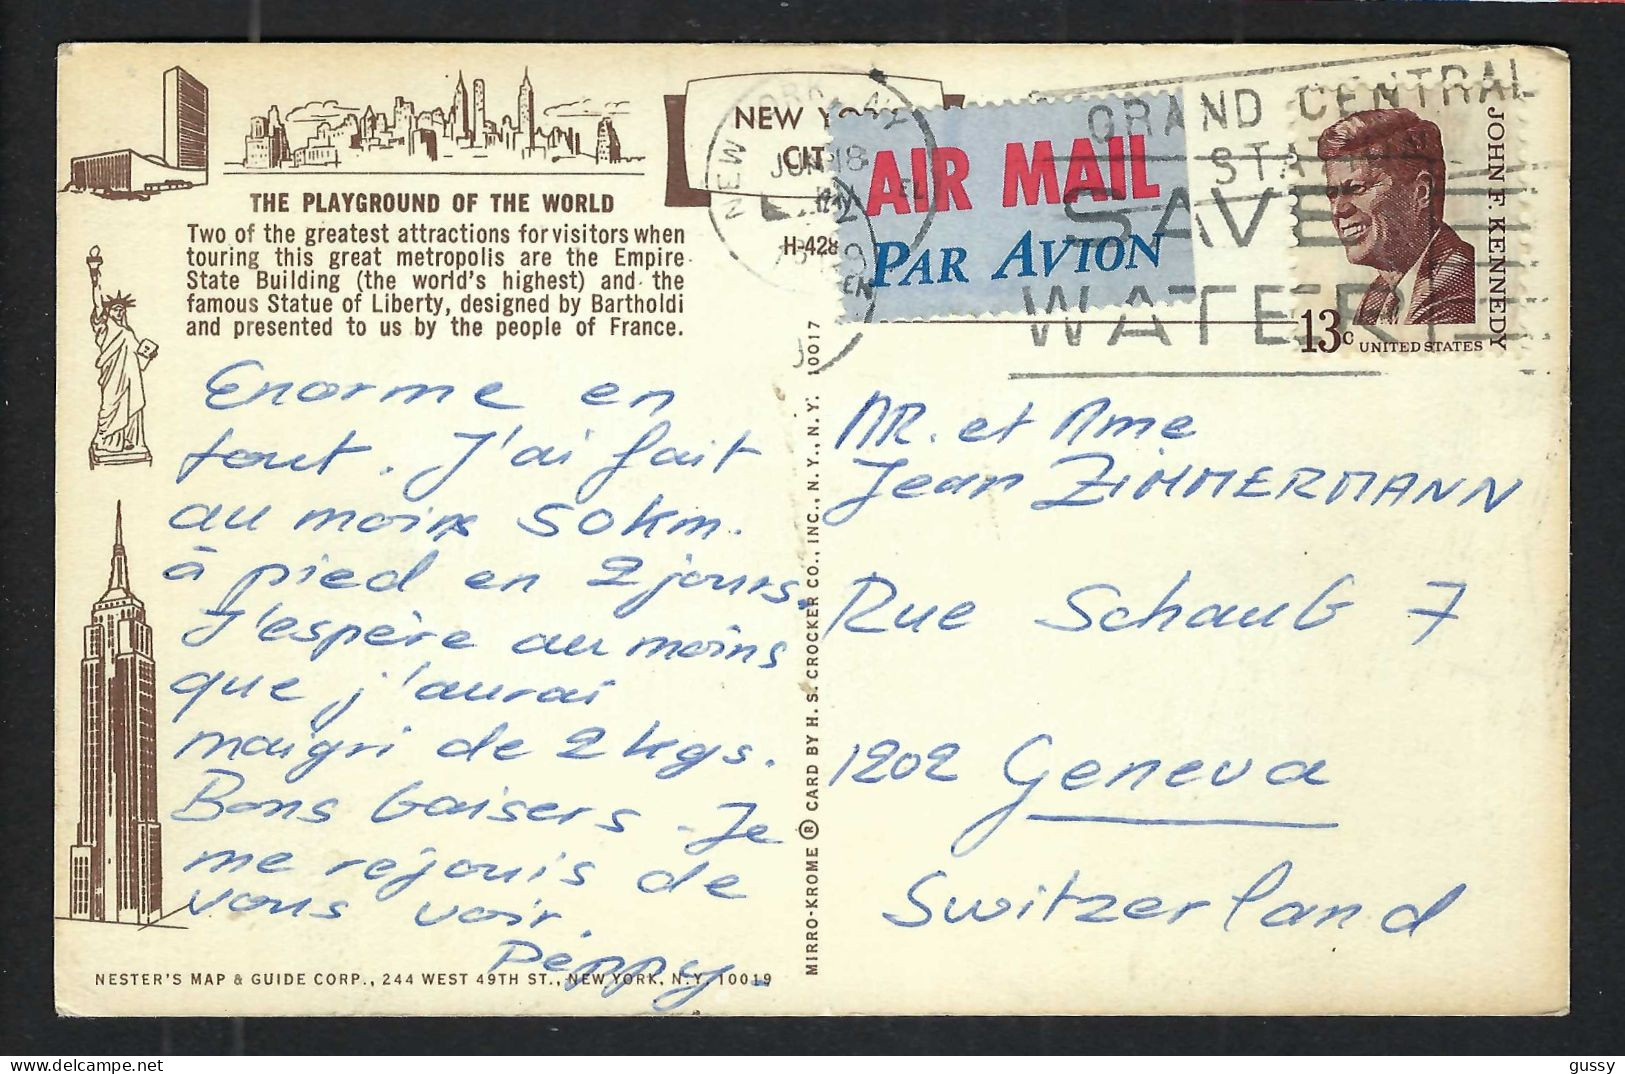 THE PLAYGROUND OF THE WORLD
Two of the greatest attractions for visitors when
touring this great metropolis are the Empire
State Building (the world's highest) and the
famous Statue of Liberty, designed by Bartholdi
and presented to us by the people of France.
Enorme en
tout. J'ai fait
au moins 50 km.
à pied en 2 jours.
J'espère au moins
que j'aurai
maigri de 2 kgs.
Bons baisers - Je
me réjouis de
vous voir.
Péppy.
NESTER'S MAP & GUIDE CORP., 244 WEST 49TH ST., NEW YORK, N.Y. 10019
MIRRO-KROME ® CARD BY H. S. CROCKER CO., INC., N.Y., N.Y. 10017
NEW YORK
CIT
H-428
NEW YORK, N.Y.
JUN 18
AIR MAIL
PAR AVION
GRAND CENTRAL
STATION
SAVE
WATER
JOHN F. KENNEDY
13c
UNITED STATES
MR. et Mme
Jean ZIMMERMANN
Rue Schaub 7
1202 Geneva
Switzerland
gussy